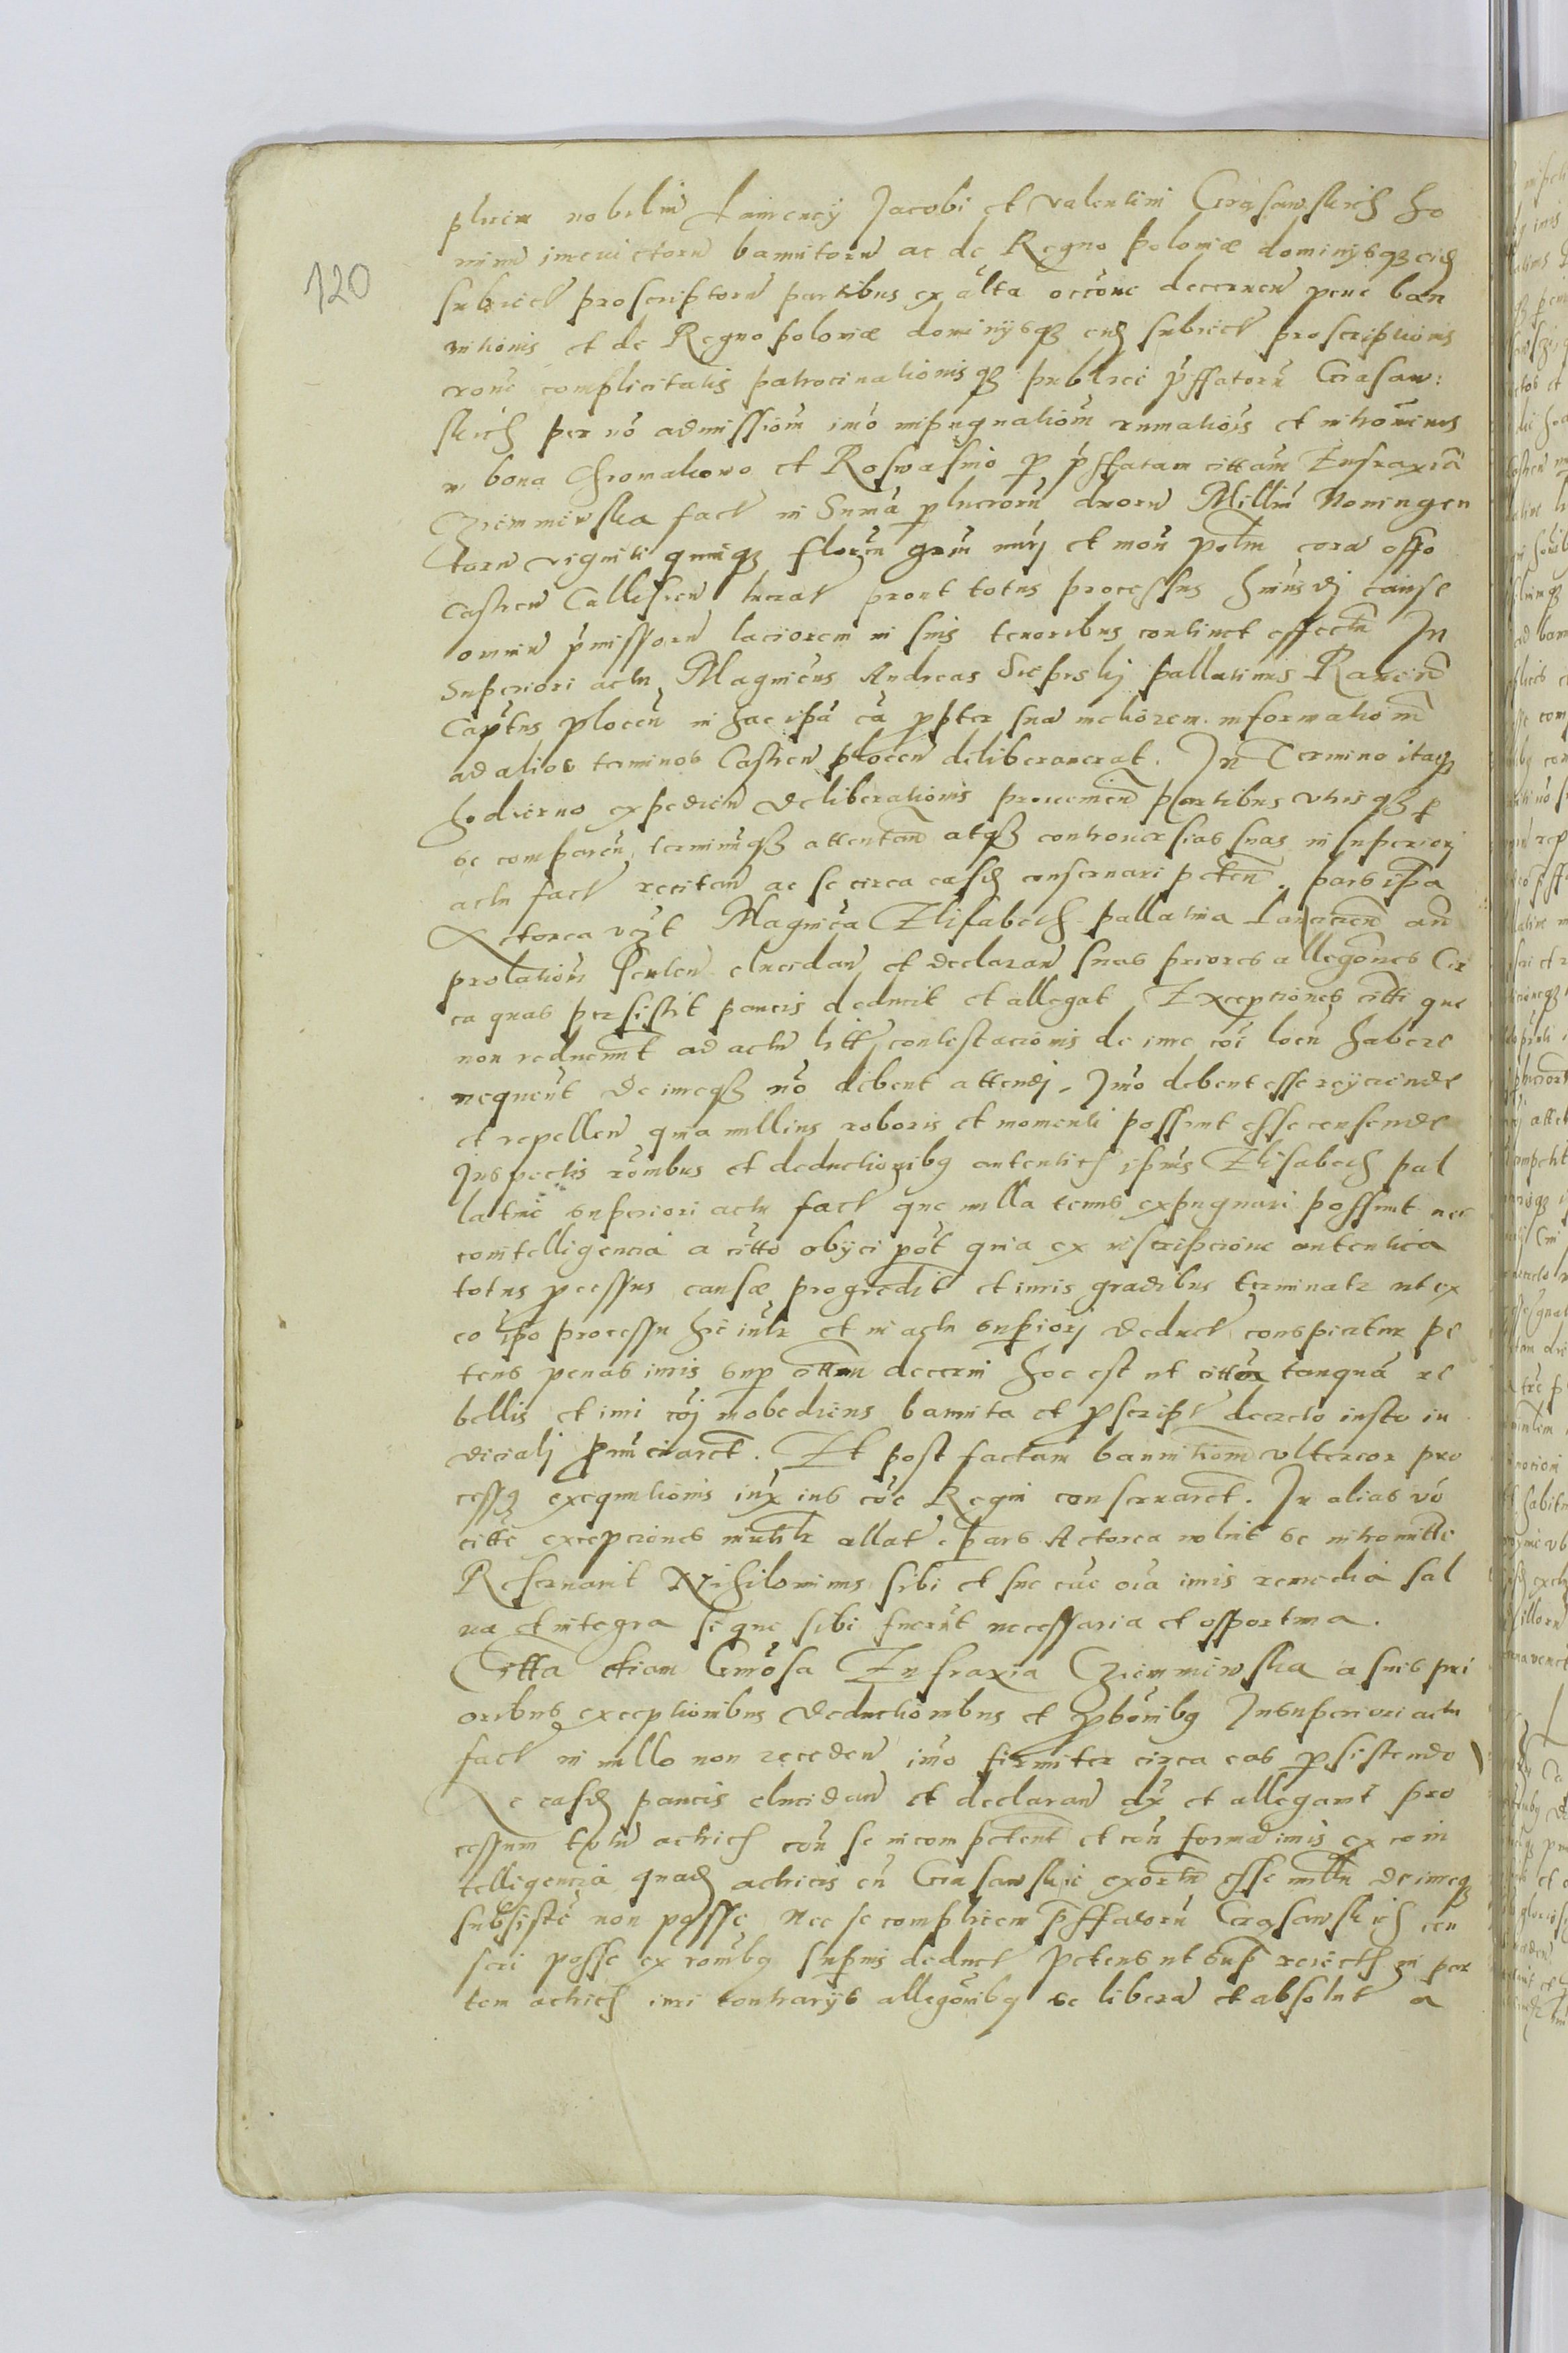 120
plicem nobilium Laurency Jacobi et valentini Grasawskich ho
minum inevictorum bannitorum ac de Regno poloniæ dominysqz eidem
subiect proscriptorum partibus ex altera occone decernen pene ban
nitionis et de Regno poloniæ dominysqz eidem subiect proscriptionis
rone complicitatis patrocinationisqz publici pffatorum Grasaw:
skich per no admissiom imo inpugnatiom rumatiois et intromiss
in bona Chromakowo et Roswasino p pffatam cittam Eufraxia
Cziemmiewska fact in Suma plucrorum duorum Millium Noningen
torum viginti quinqz florenum grum et mon polm coram offo
Castren Callisien lucrat prout totus processus huiusdj cause
omnium pmissorum laciorem in suis tenoribus continet effectum In
Superiori actu Magnicus Andreas Sieprskj pallatinus Ravien
Captus plocen in hac ipa ca ppter sua meliorem informatiom
ad alios terminos Castren plocen deliberaverat. In Termino itaqz
hodierno ex pedicen deliberationis provenien partibus utrisqz p
se comparen, terminumqz attentan atqz controversias suas in superiorj
actu fact recitan ac se circa easdem conservari peten. pars ipa
Actorea vczt Magnica Elisabeth pallatina Lancicien an
prolatiom senten elucidan et declaran suas priores allegones Cir
ca quas persistit paucis deducit et allegat Exceptiones citti que
non redneunt ad actu litt contestacionis de iure coi locum habere
nequent de iureqz no debent attendj. Imo debent esse reyciende
et repellen quia nullius roboris et momenti possunt esse censende
Inspectis rombus et deductionibq autentich ipius Elisabeth pal
latine superiori actu fact que nulla tenus expugnari possunt nec
cointelligencia a citto obyci pot quia ex inscripcione autentica
totus pcessus causæ progredit et iuris gradibus terminatr ut ex
eo ipo processu hic intr et in actu supiorj deduct conspicitur pe
tens penas iuris sup cittam decerni hoc est ut citta tanqua re
bellis et iuri coj inobediens bannita et pscript decreto iusto iu
dicialj pnunciaret. Et post factam bannitiom ulterior pro
cessus exequutionis iuxta ius coe Regni conservaret. In alias vo
citte excepciones inutilr allat. pars Actorea noluit se intromitte
Reservavit Nihilominus sibi et sue cae oia iuris remedia sal
va et integra si que sibi fuerut necessaria et opportuna.
Citta etiam Gnosa Eufraxia Cziemmiewska a suis pri
oribus exceptionibus deductionibus et pbonibq In superiori actu
fact in nullo non receden imo firmiter circa eas psistendo
Ac easdem paucis elucidan et declaran dx et allegavit pro
cessum totum actricis con se incompetent et con forma iuris ex coin
telligencia quadam actricis cum Grasawskie exortu esse nullu de iureqz
subsiste non posse, Nec se complicem pffatorum Grasawskich cen
seri posse ex rombq supius deduct petens ut sup reiectis in par
tem actricis iuri contrarys allegonibq se libera et absolut a